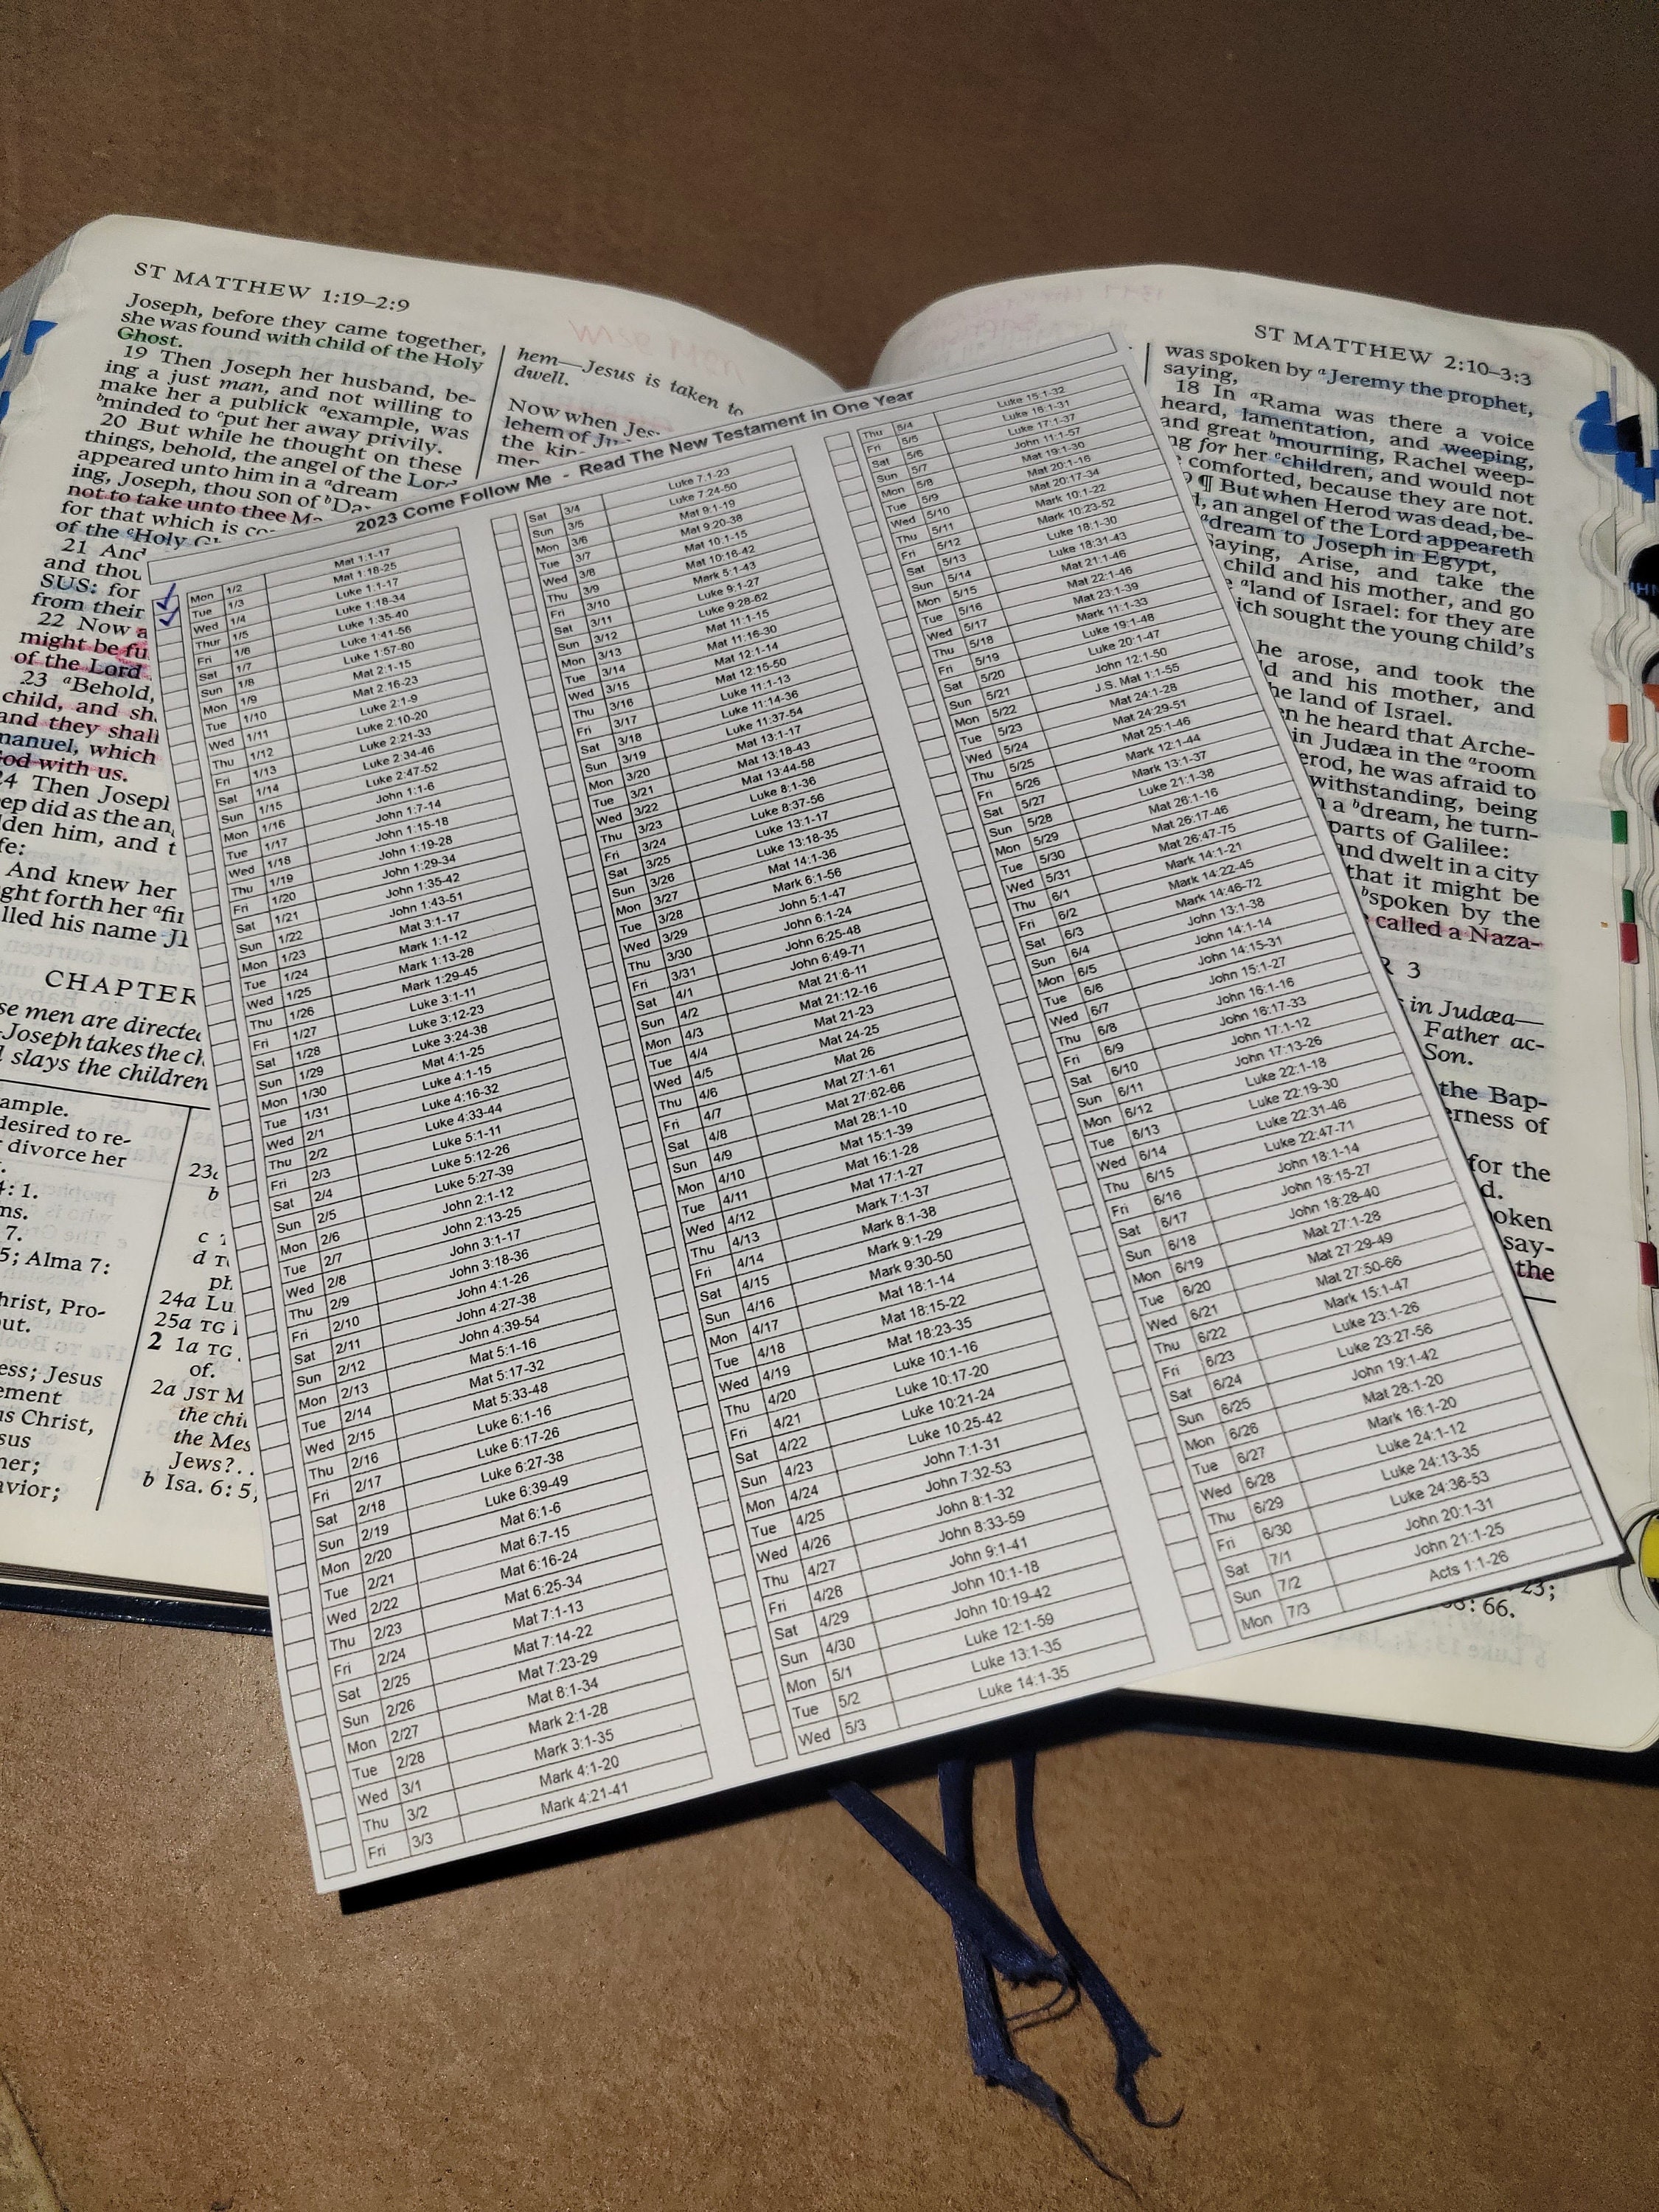 ST MATTHEW 1:19–2:9
Joseph, before they came together,
she was found with child of the Holy
Ghost.
19 Then Joseph her husband, be-
ing a just man, and not willing to
make her a publick ᵃexample, was
ᵇminded to ᶜput her away privily.
20 But while he thought on these
things, behold, the angel of the Lord
appeared unto him in a ᵃdream
ing, Joseph, thou son of
not to take unto thee
for that which is
of the ᵉHoly
21 And
and thou
SUS: for
from their
22 Now
might be
of the Lord
23 ᵃBehold,
child, and
and they shall
which
with us.
Then
did as the
him, and
And knew her
forth her
his name
CHAPTER
men are directed
Joseph takes the
slays the children
desired to re-
divorce her
4: 1.
7.
5; Alma 7:
Pro-
Jesus
Christ,
23c
b
c
d
24a
25a TG
2 1a TG
of.
2a JST M
the
the
Jews?. .
b Isa. 6: 5,
hem—Jesus is taken to
dwell.
Now when
lehem of
the
ST MATTHEW 2:10–3:3
was spoken by ᵃJeremy the prophet,
saying,
18 In ᵃRama was there a voice
heard, lamentation, and weeping,
and great ᵇmourning, Rachel weep-
for her ᶜchildren, and would not
comforted, because they are not.
¶ But when Herod was dead, be-
an angel of the Lord appeareth
ᵃdream to Joseph in Egypt,
Saying, Arise, and take the
child and his mother, and go
ᵃland of Israel: for they are
which sought the young child's
he arose, and took the
and his mother, and
the land of Israel.
he heard that Arche-
in Judæa in the ᵃroom
he was afraid to
being
a ᵇdream, he turn-
parts of Galilee:
and dwelt in a city
that it might be
ᵇspoken by the
called a Naza-
3
in Judæa—
Father ac-
Son.
the Bap-
of
for the
say-
the
23;
66.
2023 Come Follow Me - Read The New Testament in One Year
Mon 1/2 Mat 1:1-17
Tue 1/3 Mat 1:18-25
Wed 1/4 Luke 1:1-17
Thur 1/5 Luke 1:18-34
Fri 1/6 Luke 1:35-40
Sat 1/7 Luke 1:41-56
Sun 1/8 Luke 1:57-80
Mon 1/9 Mat 2:1-15
Tue 1/10 Mat 2:16-23
Wed 1/11 Luke 2:1-9
Thu 1/12 Luke 2:10-20
Fri 1/13 Luke 2:21-33
Sat 1/14 Luke 2:34-46
Sun 1/15 Luke 2:47-52
Mon 1/16 John 1:1-6
Tue 1/17 John 1:7-14
Wed 1/18 John 1:15-18
Thu 1/19 John 1:19-28
Fri 1/20 John 1:29-34
Sat 1/21 John 1:35-42
Sun 1/22 John 1:43-51
Mon 1/23 Mat 3:1-17
Tue 1/24 Mark 1:1-12
Wed 1/25 Mark 1:13-28
Thu 1/26 Mark 1:29-45
Fri 1/27 Luke 3:1-11
Sat 1/28 Luke 3:12-23
Sun 1/29 Luke 3:24-38
Mon 1/30 Mat 4:1-25
Tue 1/31 Luke 4:1-15
Wed 2/1 Luke 4:16-32
Thu 2/2 Luke 4:33-44
Fri 2/3 Luke 5:1-11
Sat 2/4 Luke 5:12-26
Sun 2/5 Luke 5:27-39
Mon 2/6 John 2:1-12
Tue 2/7 John 2:13-25
Wed 2/8 John 3:1-17
Thu 2/9 John 3:18-36
Fri 2/10 John 4:1-26
Sat 2/11 John 4:27-38
Sun 2/12 John 4:39-54
Mon 2/13 Mat 5:1-16
Tue 2/14 Mat 5:17-32
Wed 2/15 Mat 5:33-48
Thu 2/16 Luke 6:1-16
Fri 2/17 Luke 6:17-26
Sat 2/18 Luke 6:27-38
Sun 2/19 Luke 6:39-49
Mon 2/20 Mat 6:1-6
Tue 2/21 Mat 6:7-15
Wed 2/22 Mat 6:16-24
Thu 2/23 Mat 6:25-34
Fri 2/24 Mat 7:1-13
Sat 2/25 Mat 7:14-22
Sun 2/26 Mat 7:23-29
Mon 2/27 Mat 8:1-34
Tue 2/28 Mark 2:1-28
Wed 3/1 Mark 3:1-35
Thu 3/2 Mark 4:1-20
Fri 3/3 Mark 4:21-41
Sat 3/4 Luke 7:1-23
Sun 3/5 Luke 7:24-50
Mon 3/6 Mat 9:1-19
Tue 3/7 Mat 9:20-38
Wed 3/8 Mat 10:1-15
Thu 3/9 Mat 10:16-42
Fri 3/10 Mark 5:1-43
Sat 3/11 Luke 9:1-27
Sun 3/12 Luke 9:28-62
Mon 3/13 Mat 11:1-15
Tue 3/14 Mat 11:16-30
Wed 3/15 Mat 12:1-14
Thu 3/16 Mat 12:15-50
Fri 3/17 Luke 11:1-13
Sat 3/18 Luke 11:14-36
Sun 3/19 Luke 11:37-54
Mon 3/20 Mat 13:1-17
Tue 3/21 Mat 13:18-43
Wed 3/22 Mat 13:44-58
Thu 3/23 Luke 8:1-36
Fri 3/24 Luke 8:37-56
Sat 3/25 Luke 13:1-17
Sun 3/26 Luke 13:18-35
Mon 3/27 Mat 14:1-36
Tue 3/28 Mark 6:1-56
Wed 3/29 John 5:1-47
Thu 3/30 John 6:1-24
Fri 3/31 John 6:25-48
Sat 4/1 John 6:49-71
Sun 4/2 Mat 21:6-11
Mon 4/3 Mat 21:12-16
Tue 4/4 Mat 21-23
Wed 4/5 Mat 24-25
Thu 4/6 Mat 26
Fri 4/7 Mat 27:1-61
Sat 4/8 Mat 27:62-66
Sun 4/9 Mat 28:1-10
Mon 4/10 Mat 15:1-39
Tue 4/11 Mat 16:1-28
Wed 4/12 Mat 17:1-27
Thu 4/13 Mark 7:1-37
Fri 4/14 Mark 8:1-38
Sat 4/15 Mark 9:1-29
Sun 4/16 Mark 9:30-50
Mon 4/17 Mat 18:1-14
Tue 4/18 Mat 18:15-22
Wed 4/19 Mat 18:23-35
Thu 4/20 Luke 10:1-16
Fri 4/21 Luke 10:17-20
Sat 4/22 Luke 10:21-24
Sun 4/23 Luke 10:25-42
Mon 4/24 John 7:1-31
Tue 4/25 John 7:32-53
Wed 4/26 John 8:1-32
Thu 4/27 John 8:33-59
Fri 4/28 John 9:1-41
Sat 4/29 John 10:1-18
Sun 4/30 John 10:19-42
Mon 5/1 Luke 12:1-59
Tue 5/2 Luke 13:1-35
Wed 5/3 Luke 14:1-35
Thu 5/4 Luke 15:1-32
Fri 5/5 Luke 16:1-31
Sat 5/6 Luke 17:1-37
Sun 5/7 John 11:1-57
Mon 5/8 Mat 19:1-30
Tue 5/9 Mat 20:1-16
Wed 5/10 Mat 20:17-34
Thu 5/11 Mark 10:1-22
Fri 5/12 Mark 10:23-52
Sat 5/13 Luke 18:1-30
Sun 5/14 Luke 18:31-43
Mon 5/15 Mat 21:1-46
Tue 5/16 Mat 22:1-46
Wed 5/17 Mat 23:1-39
Thu 5/18 Mark 11:1-33
Fri 5/19 Luke 19:1-48
Sat 5/20 Luke 20:1-47
Sun 5/21 John 12:1-50
Mon 5/22 J.S. Mat 1:1-55
Tue 5/23 Mat 24:1-28
Wed 5/24 Mat 24:29-51
Thu 5/25 Mat 25:1-46
Fri 5/26 Mark 12:1-44
Sat 5/27 Mark 13:1-37
Sun 5/28 Luke 21:1-38
Mon 5/29 Mat 26:1-16
Tue 5/30 Mat 26:17-46
Wed 5/31 Mat 26:47-75
Thu 6/1 Mark 14:1-21
Fri 6/2 Mark 14:22-45
Sat 6/3 Mark 14:46-72
Sun 6/4 John 13:1-38
Mon 6/5 John 14:1-14
Tue 6/6 John 14:15-31
Wed 6/7 John 15:1-27
Thu 6/8 John 16:1-16
Fri 6/9 John 16:17-33
Sat 6/10 John 17:1-12
Sun 6/11 John 17:13-26
Mon 6/12 Luke 22:1-18
Tue 6/13 Luke 22:19-30
Wed 6/14 Luke 22:31-46
Thu 6/15 Luke 22:47-71
Fri 6/16 John 18:1-14
Sat 6/17 John 18:15-27
Sun 6/18 John 18:28-40
Mon 6/19 Mat 27:1-28
Tue 6/20 Mat 27:29-49
Wed 6/21 Mat 27:50-66
Thu 6/22 Mark 15:1-47
Fri 6/23 Luke 23:1-26
Sat 6/24 Luke 23:27-56
Sun 6/25 John 19:1-42
Mon 6/26 Mat 28:1-20
Tue 6/27 Mark 16:1-20
Wed 6/28 Luke 24:1-12
Thu 6/29 Luke 24:13-35
Fri 6/30 Luke 24:36-53
Sat 7/1 John 20:1-31
Sun 7/2 John 21:1-25
Mon 7/3 Acts 1:1-26